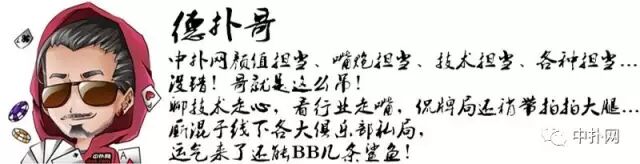 德扑哥
中扑网颜值担当、嘴炮担当、技术担当、各种担当...
没错!哥就是这么吊!
聊技术走心，看行业走嘴，侃牌局还稍带拍拍大腿...
厮混于线下各大俱乐部私局，
运气来了还能BB几条鲨鱼!
中扑网
中扑网